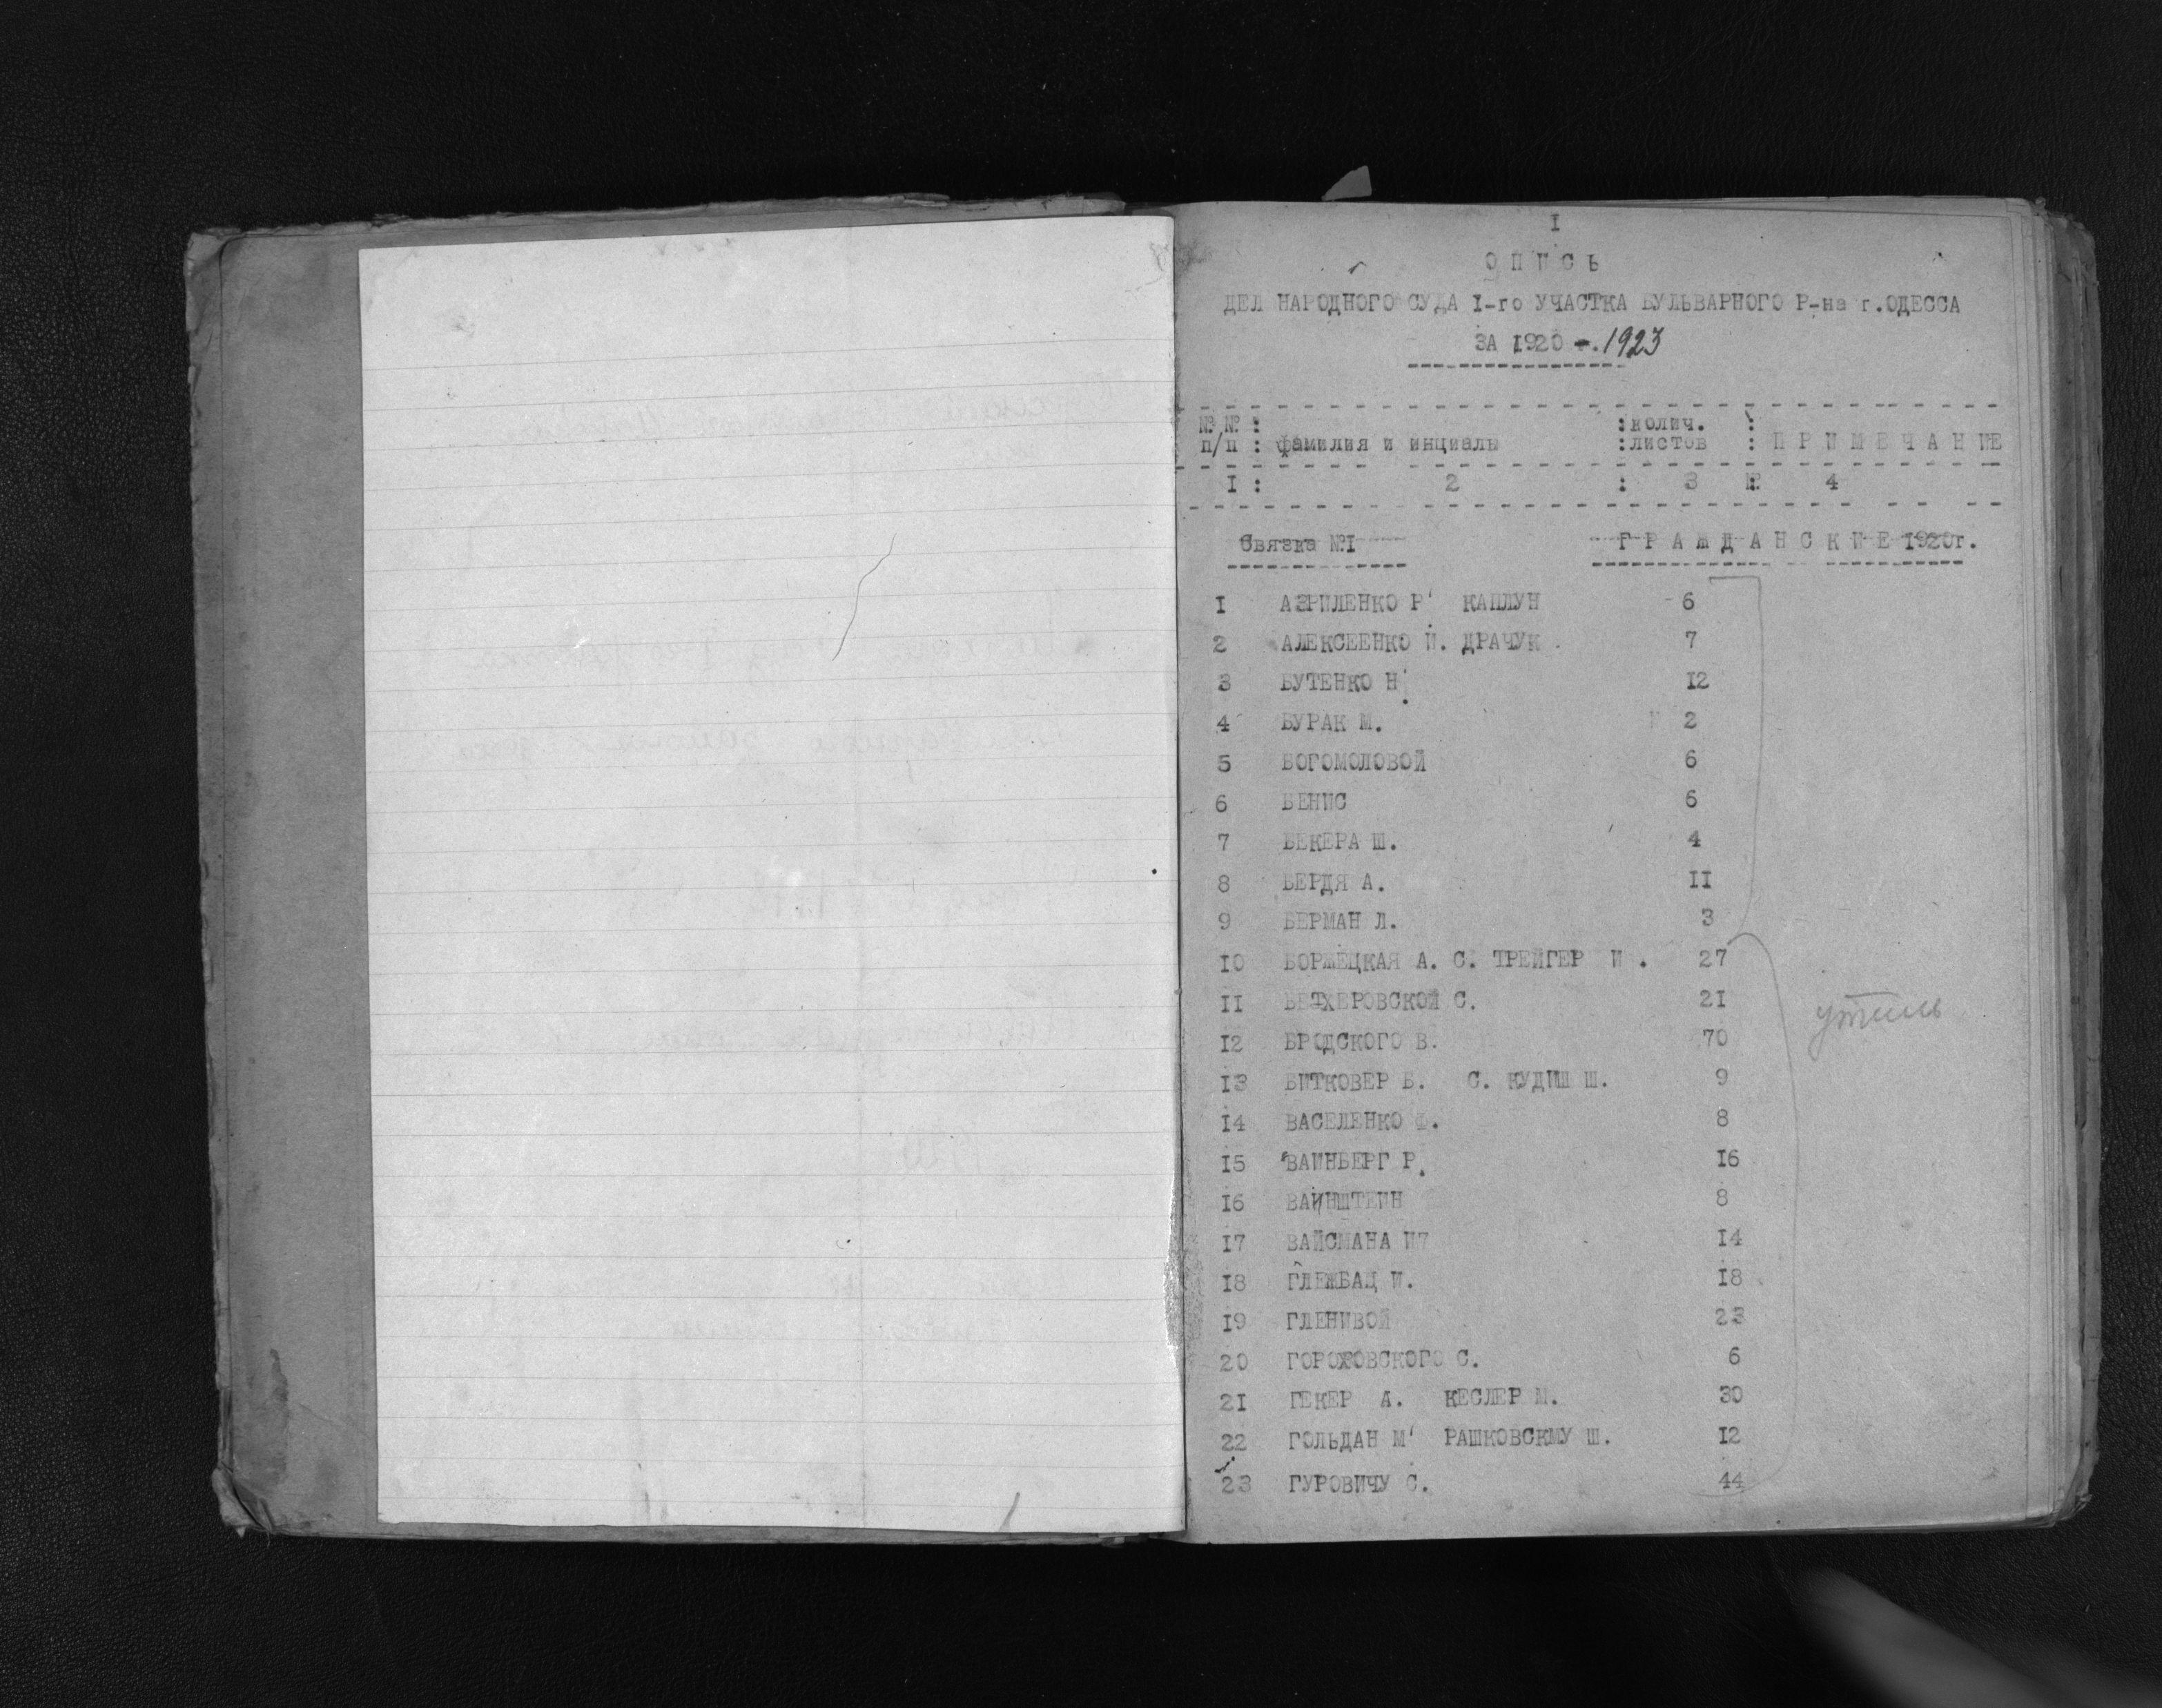 I
О П И С Ь
ДЕЛ НАРОДНОГО СУДА I-го УЧАСТКА БУЛЬВАРНОГО Р-на г.ОДЕССА
ЗА 1920 - 1923
№ № : : колич. :
п/п : фамилия и инциалы : листов : П Р И М Е Ч А Н ИЕ
I : 2 : 3 : 4
Связка №I Г Р А Ж Д А Н С К И Е 1920г.
I АВРИЛЕНКО Р' КАПЛУН 6
2 АЛЕКСЕЕНКО И. ДРАЧУК 7
3 БУТЕНКО Н. 12
4 БУРАК М. 2
5 БОГОМОЛОВОЙ 6
6 БЕНИС 6
7 БЕКЕРА Ш. 4
8 БЕРДЯ А. II
9 БЕРМАН Л. 3
IO БОРЖЕЦКАЯ А. С. ТРЕЙГЕР И . 27
II БЕТХЕРОВСКОЙ С. 2I
I2 БРОДСКОГО В. 70
I3 БИТКОВЕР Б. С. КУДИШ Ш. 9
I4 ВАСЕЛЕНКО Ф. 8
I5 ВАИНБЕРГ Р. I6
I6 ВАЙНШТЕИН 8
I7 ВАЙСМАНА И7 I4
I8 ГЛЕЖБАД И. I8
I9 ГЛЕНИВОЙ 23
20 ГОРОХОВСКОГО С. 6
2I ГЕКЕР А. КЕСЛЕР М. 30
22 ГОЛЬДАН М' РАШКОВСКМУ Ш. I2
23 ГУРОВИЧУ С. 44
утиль